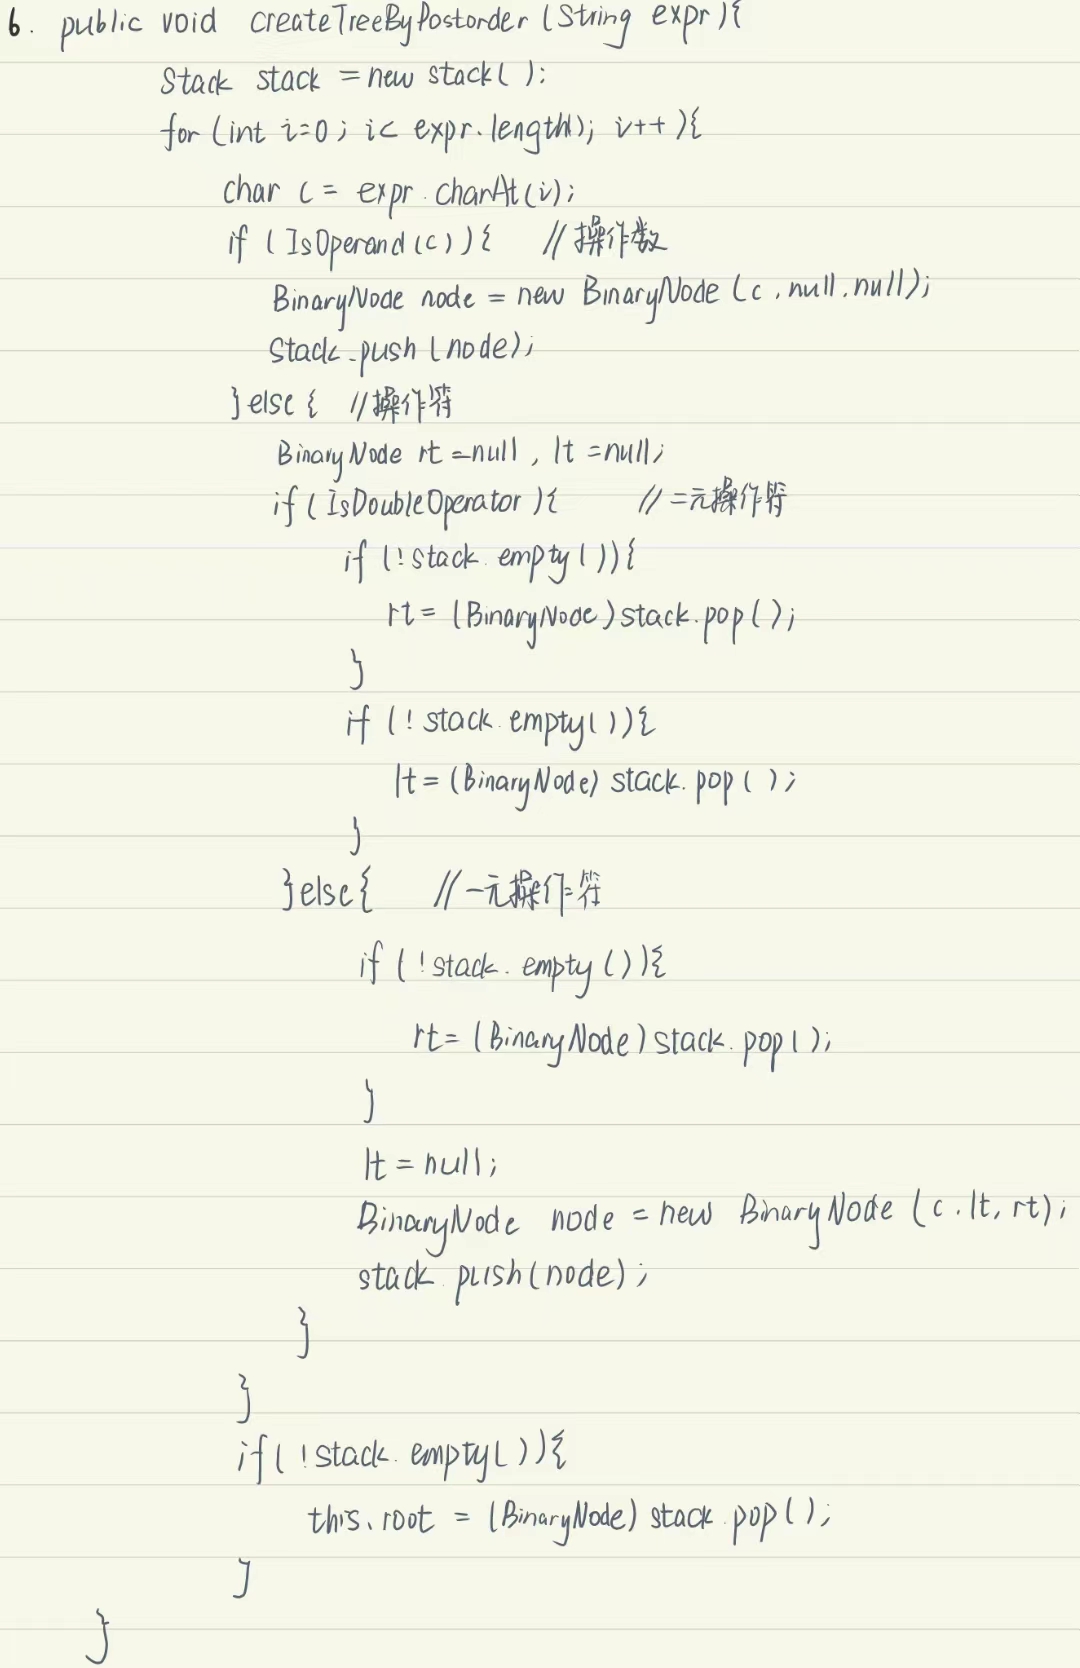 6. public void createTreeByPostorder (String expr){
Stack stack = new stack( );
for (int i=0; i< expr.length); i++ ){
char c = expr.charAt(i);
if ( IsOperand(c)){ //操作数
BinaryNode node = new BinaryNode (c,null,null);
Stack.push (node);
}else { //操作符
BinaryNode rt =null, lt =null;
if ( IsDoubleOperator ){ //二元操作符
if (!stack.empty( )){
rt= (BinaryNode)stack.pop( );
}
if (! stack.empty( )){
lt= (BinaryNode) stack.pop ( );
}
}else{ //一元操作符
if ( !stack.empty ()){
rt= (BinaryNode) stack.pop( );
}
lt = null;
BinaryNode node = new BinaryNode (c.lt, rt);
stack.push(node);
}
}
if( !stack.empty( )){
this.root = (BinaryNode) stack.pop( );
}
}